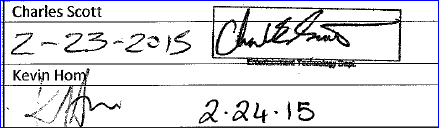 Charles Scott
2-23-2015
Entertainment Technology Dept.
Kevin Hom
2.24.15